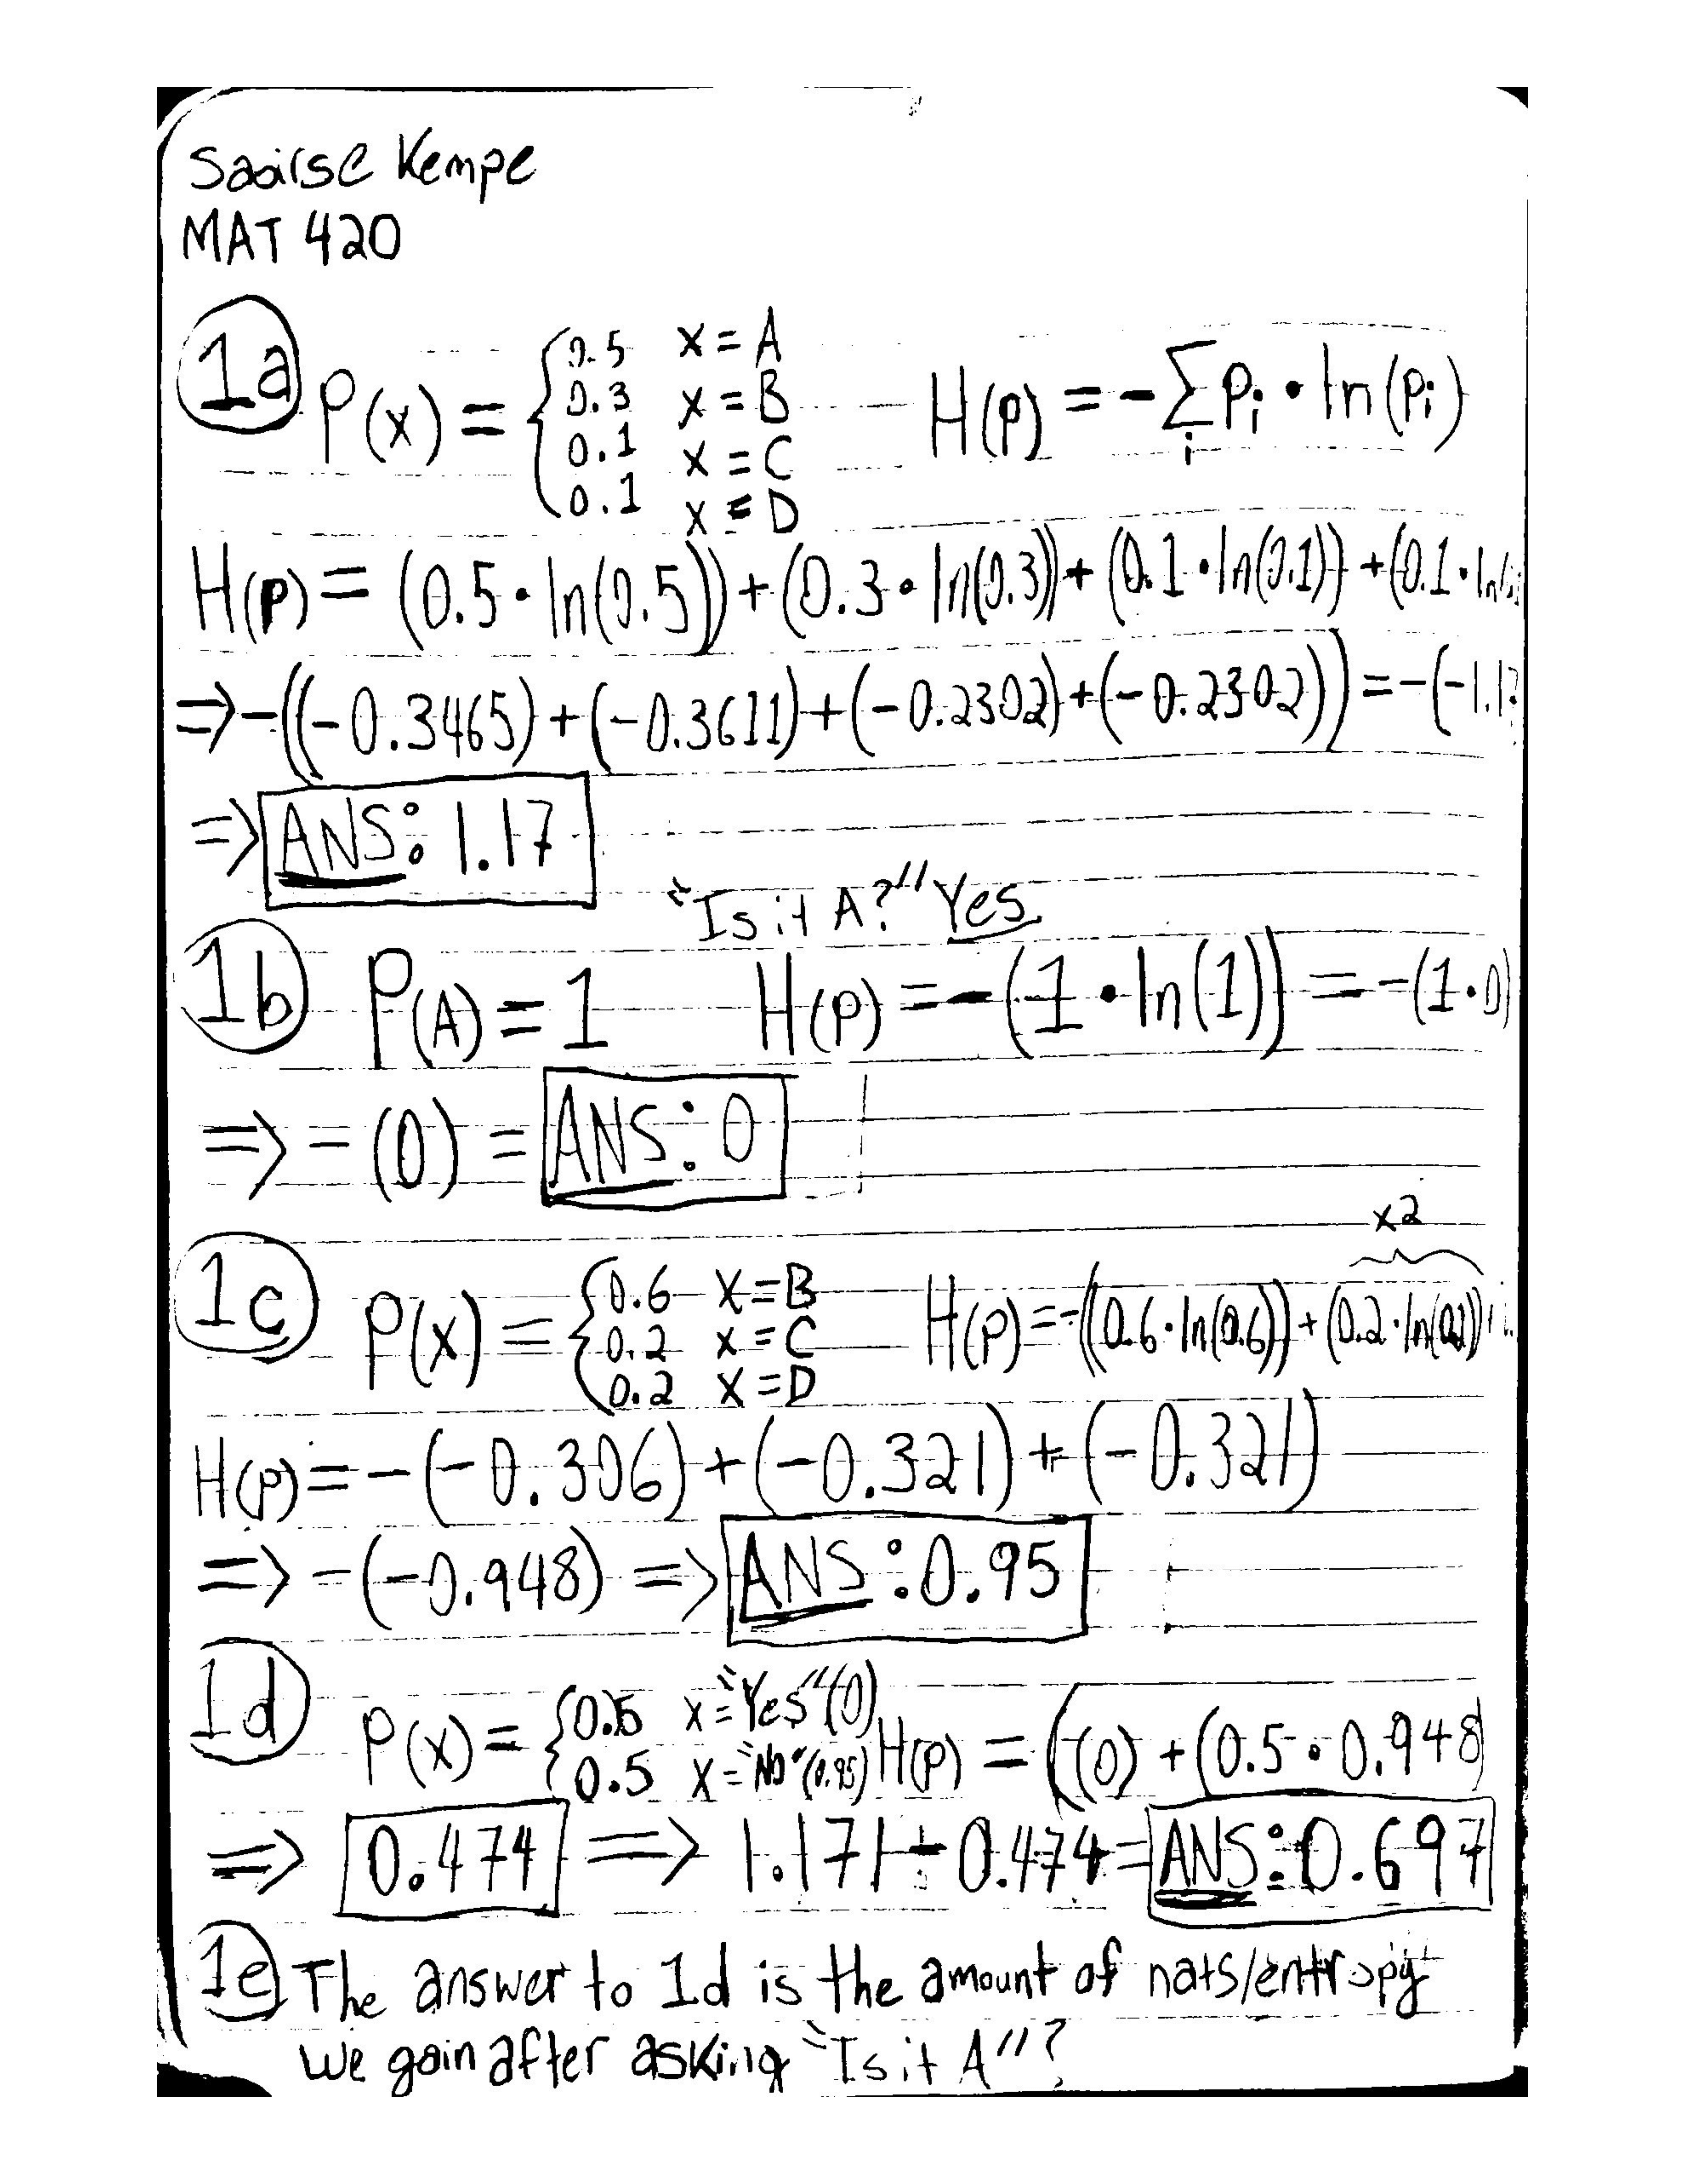 Saoirse Kempe
MAT 420
1a P(x) = { 0.5 x = A
0.3 x = B
0.1 x = C
0.1 x = D
H(p) = -∑i Pi • ln(Pi)
H(p) = (0.5 • ln(0.5)) + (0.3 • ln(0.3)) + (0.1 • ln(0.1)) + (0.1 • ln
=> -((-0.3465) + (-0.3611) + (-0.2302) + (-0.2302)) = -(-1.1
=> ANS: 1.17
"Is it A?" Yes
1b P(A) = 1 H(p) = -(1 • ln(1)) = -(1 • 0)
=> -(0) = ANS: 0
x2
1c P(x) = { 0.6 x = B
0.2 x = C
0.2 x = D
H(p) = -((0.6 • ln(0.6)) + (0.2 • ln(0.2)) +
H(p) = -(-0.306) + (-0.321) + (-0.321)
=> -(-0.948) => ANS: 0.95
1d P(x) = { 0.5 x = "Yes" (0)
0.5 x = "No" (0.95)
H(p) = ((0) + (0.5 • 0.948)
=> 0.474 => 1.171 - 0.474 = ANS: 0.697
1e The answer to 1d is the amount of nats/entropy
we gain after asking "Is it A"?